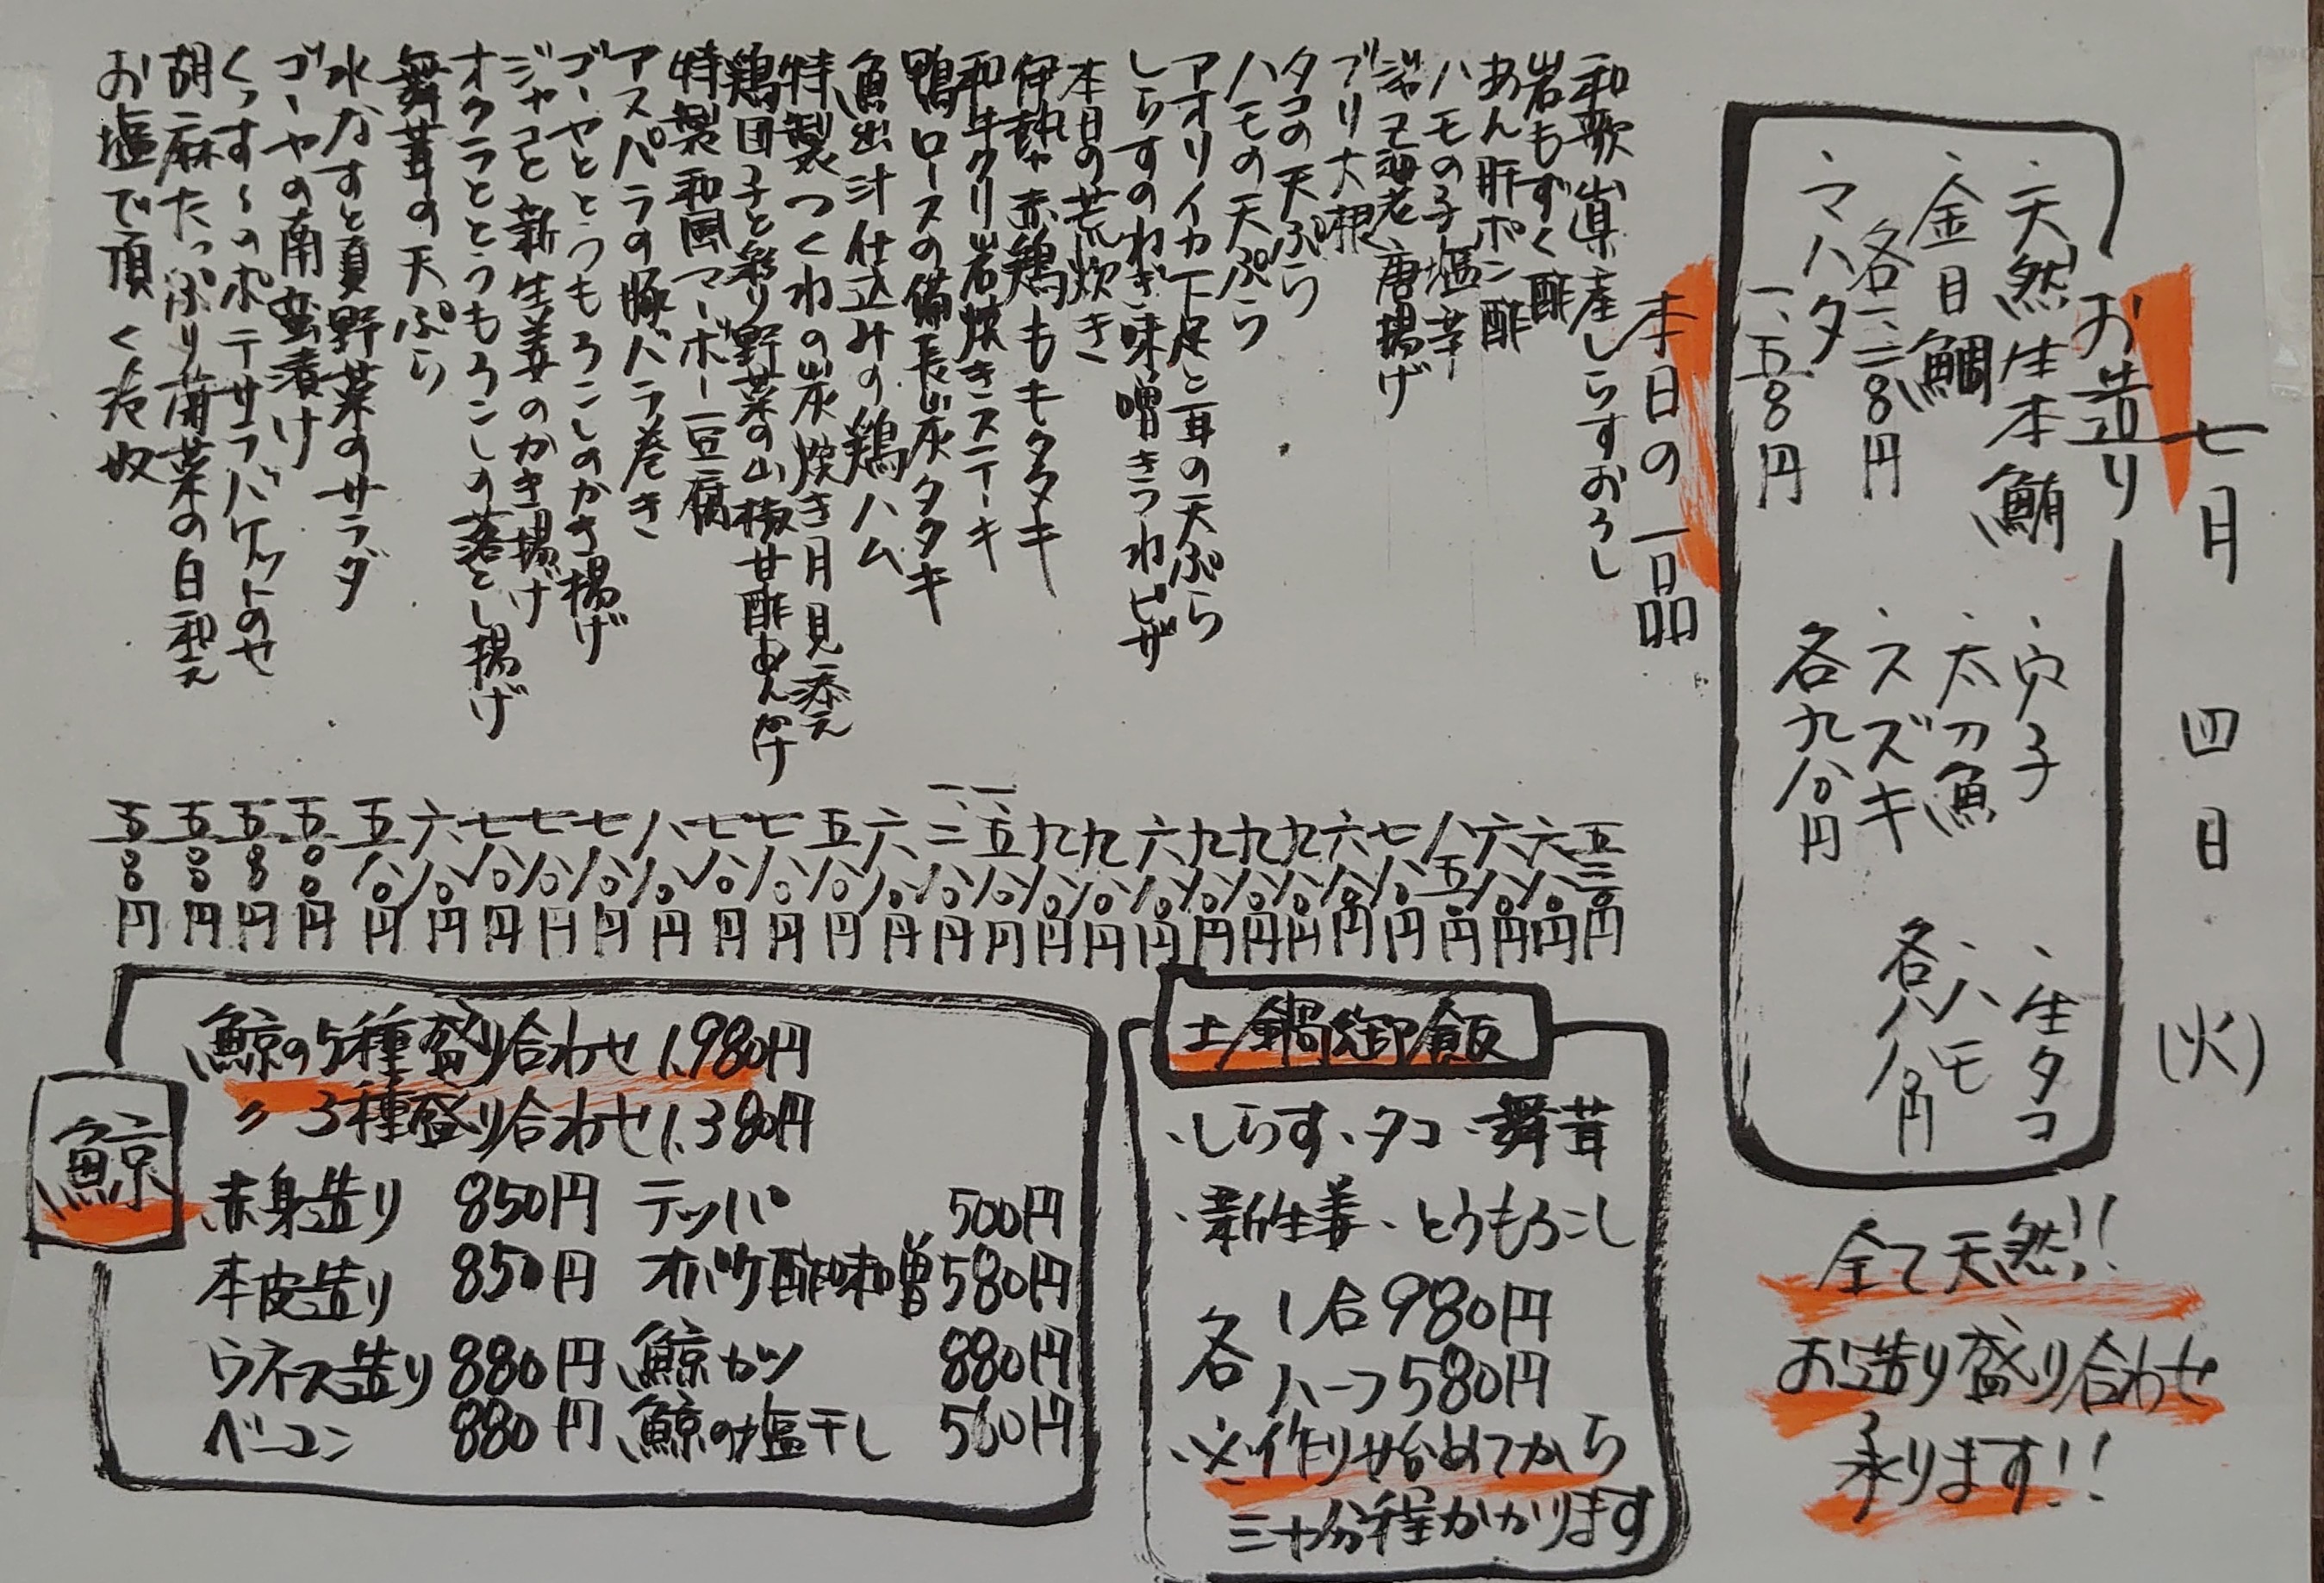 七月 四日 (火)
お造り
、天然生本鮪
、金目鯛
各一、二八〇円
、マハタ
一、五八〇円
、穴子
、太刀魚
、スズキ
各九八〇円
、生タコ
、ハモ
各八八〇円
全て天然!!
お造り盛り合わせ
承ります!!
本日の一品
和歌山県産しらすおろし 五三〇円
岩もずく酢 六八〇円
あん肝ポン酢 六八〇円
ハモの子塩辛 八五〇円
ジャコ海老唐揚げ 七八〇円
ブリ大根 六八〇円
タコの天ぷら 九八〇円
ハモの天ぷら 九八〇円
アオリイカ下足と耳の天ぷら 九八〇円
しらすのねぎ味噌きつねピザ 六八〇円
本日の荒炊き 九八〇円
伊勢赤鶏ももタタキ 九八〇円
和牛クリ岩焼きステーキ 一、五八〇円
鴨ロースの備長炭タタキ 一、二八〇円
魚出汁仕込みの鶏ハム 六八〇円
特製つくねの炭焼き月見添え 五八〇円
鶏団子と彩り野菜の山椒甘酢あんかけ 七八〇円
特製和風マーボー豆腐 七八〇円
アスパラの豚バラ巻き 八八〇円
ゴーヤととうもろこしのかき揚げ 七八〇円
ジャコと新生姜のかき揚げ 七八〇円
オクラととうもろこしの落とし揚げ 七八〇円
舞茸の天ぷら 六八〇円
水なすと夏野菜のサラダ 五八〇円
ゴーヤの南蛮漬け 五〇〇円
くっすーのポテサラバケットのせ 五八〇円
胡麻たっぷり蒲菜の白和え 五〇〇円
お塩で頂く冷奴 五〇〇円
土鍋御飯
、しらす、タコ、舞茸
、新生姜、とうもろこし
各 1合980円
ハーフ580円
※作り始めてから
三十分程かかります
鯨
鯨の5種盛り合わせ 1,980円
〃 3種盛り合わせ 1,380円
赤身造り 850円 テッパ 500円
本皮造り 850円 オバケ酢味噌 580円
ウネス造り 880円 鯨カツ 880円
ベーコン 880円 鯨の塩干し 560円